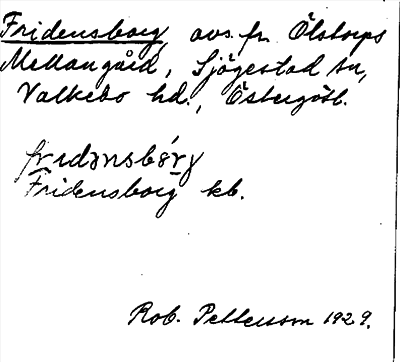 Fridensborg, avs. fr. Ölstorps
Mellangård, Sjögestad sn,
Valkebo hd., Östergötl.
fridənsbóry
Fridensborg kb.
Rob. Pettersson 1929.